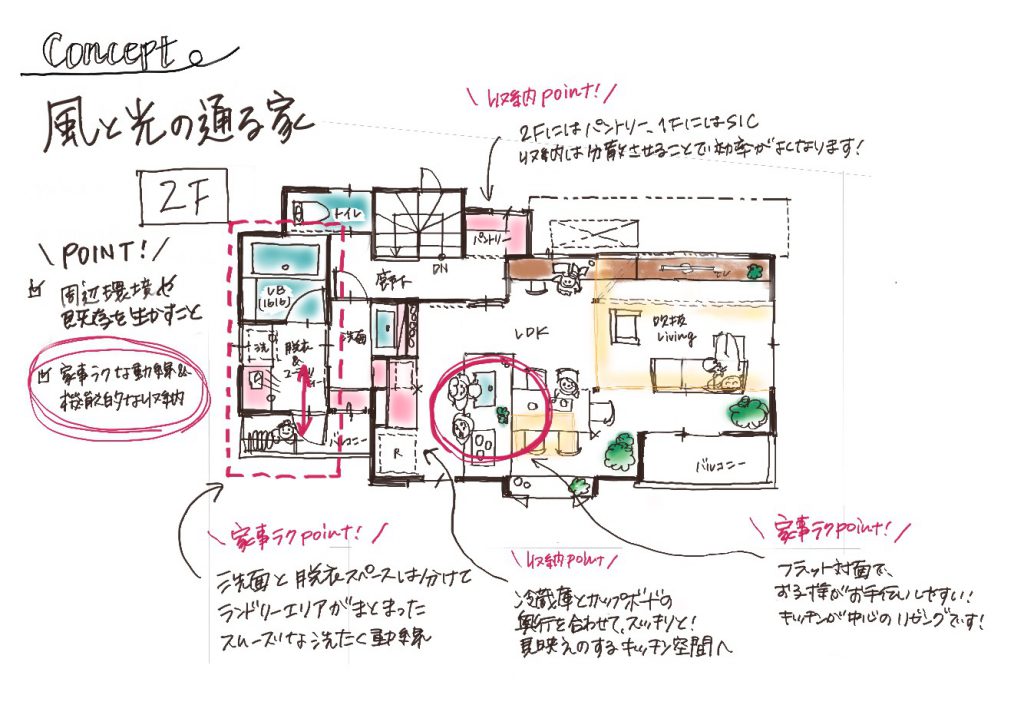 Concept
風と光の通る家
2F
\ POINT! /
周辺環境や
既存を生かすこと
家事ラクな動線&
機能的な収納
\ 収納point! /
2Fにはパントリー、1FにはSIC
収納は分散させることで効率がよくなります!
トイレ
パントリー
DN
廊下
UB
(1616)
洗面
洗
脱衣
&
LDK
吹抜
Living
TV
R
バルコニー
バルコニー
\ 家事ラクpoint! /
洗面と脱衣スペースは分けて
ランドリーエリアがまとまった
スムーズな洗たく動線
\ 収納point /
冷蔵庫とカップボードの
奥行を合わせて、スッキリと!
見映えのするキッチン空間へ
\ 家事ラクpoint! /
フラット対面で、
お子様がお手伝いしやすい!
キッチンが中心のリビングです!